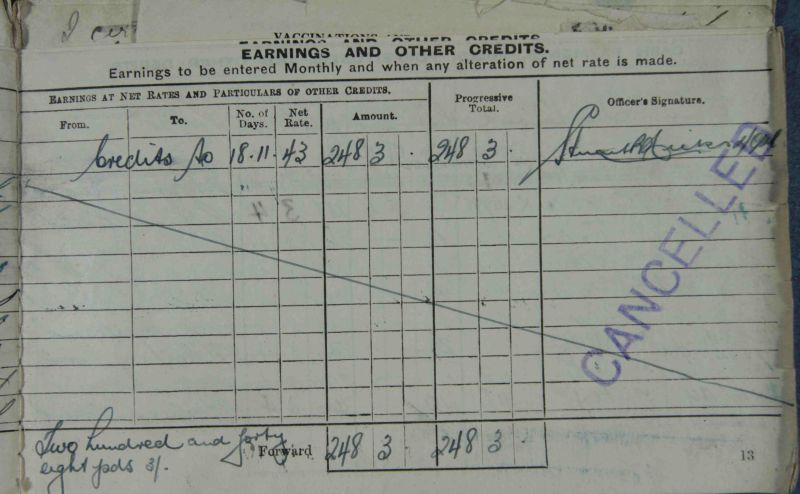 I cer
VACCINATIONS
EARNINGS AND OTHER CREDITS
EARNINGS AND OTHER CREDITS.
Earnings to be entered Monthly and when any alteration of net rate is made.
EARNINGS AT NET RATES AND PARTICULARS OF OTHER CREDITS.
Progressive Total.
Officer's Signature.
From. To. No. of Days. Net Rate. Amount.
Credits to 18.11.43 248 3 . 248 3 .
34
CANCELLED
Two hundred and forty
eight pds 3/.
Forward 248 3 . 248 3 .
13